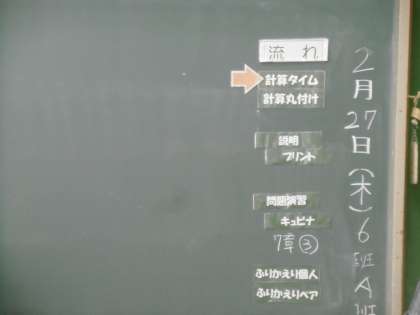 2月27日(木)6班A班
流れ
計算タイム
計算丸付け
説明
プリント
問題演習
キュビナ
7章③
ふりかえり個人
ふりかえりペア